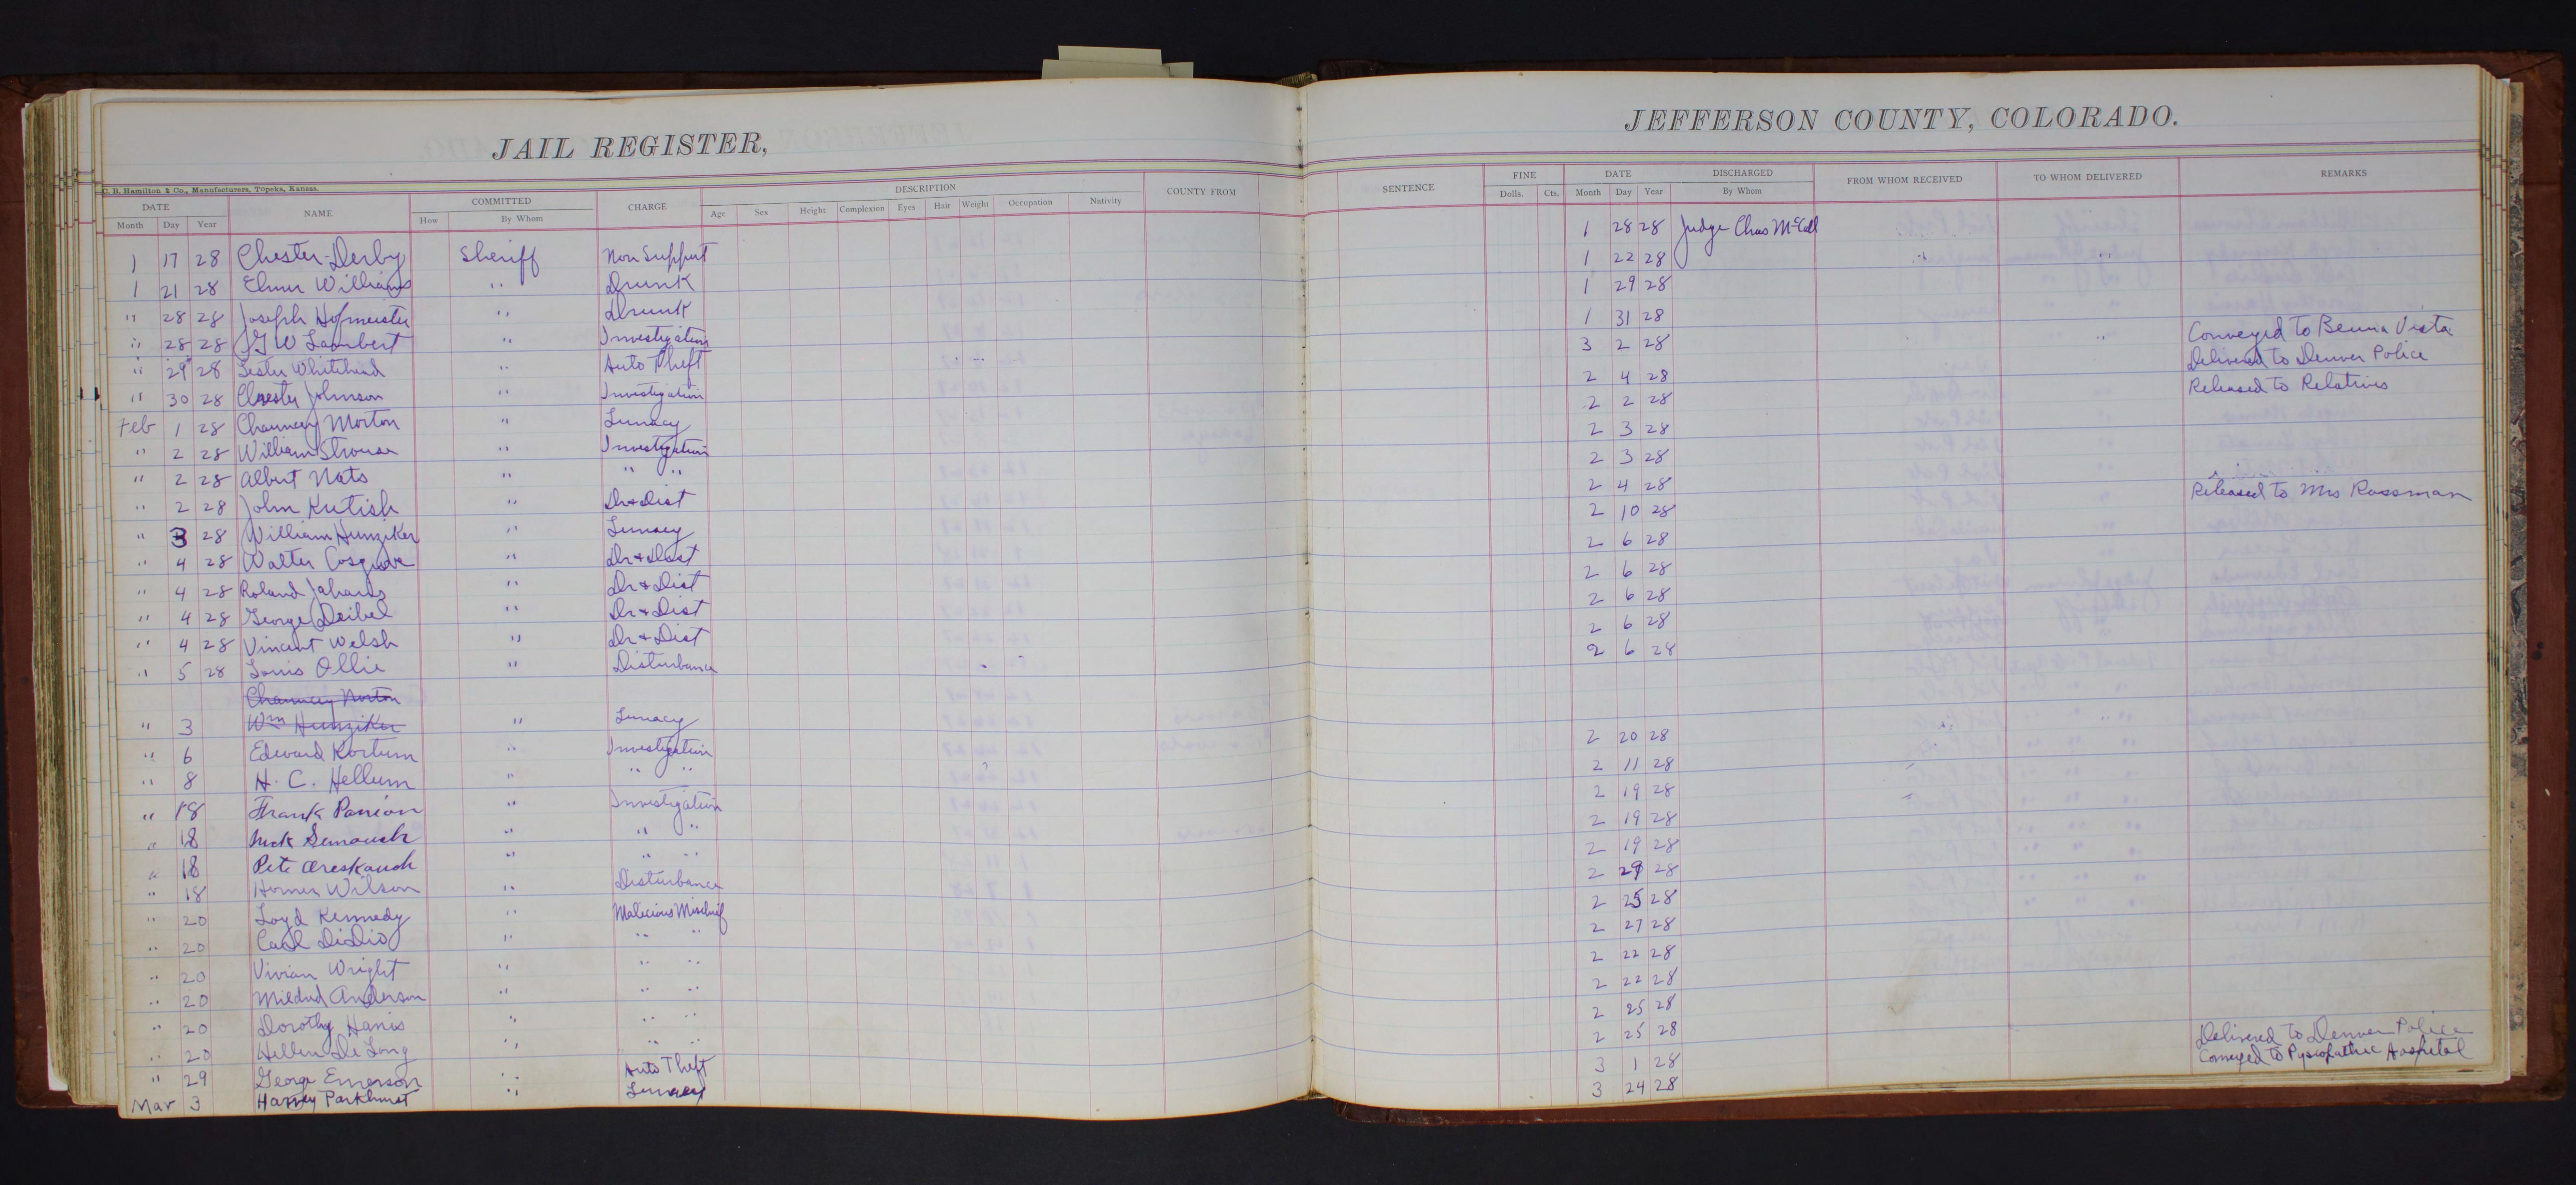 JAIL REGISTER,
JEFFERSON COUNTY, COLORADO.
C. B. Hamilton & Co., Manufacturers, Topeka, Kansas.
DATE NAME COMMITTED CHARGE DESCRIPTION COUNTY FROM SENTENCE FINE DATE DISCHARGED FROM WHOM RECEIVED TO WHOM DELIVERED REMARKS
Month Day Year How By Whom Age Sex Height Complexion Eyes Hair Weight Occupation Nativity Dolls. Cts. Month Day Year By Whom
1 17 28 Chester Derby Sheriff Non Support 1 28 28 Judge Chas McCall
1 21 28 Elmer Williams " Drunk 1 22 28
" 28 28 Joseph Hofmeister " Drunk 1 29 28
" 28 28 G W Lambert " Investigation 1 31 28
" 29 28 Lester Whitehead " Auto Theft 3 2 28 Conveyed to Beuna Vista
" 30 28 Chester Johnson " Investigation 2 4 28 Delivered to Denver Police
Feb 1 28 Chauncey Morton " Lunacy 2 2 28 Released to Relatives
" 2 28 William Strouse " Investigation 2 3 28
" 2 28 Albert Nats " " " 2 3 28
" 2 28 John Kutish " Dr & Dist 2 4 28
" 3 28 William Hunziker " Lunacy 2 10 28 Released to Mrs Rossman
" 4 28 Walter Cosgrove " Dr & Dist 2 6 28
" 4 28 Roland " Dr & Dist 2 6 28
" 4 28 George Deibel " Dr & Dist 2 6 28
" 4 28 Vincent Welsh " Dr & Dist 2 6 28
" 5 28 Louis Ollie " Disturbance 2 6 28
Chauncey Norton
" 3 Wm Hunziker " Lunacy
" 6 Edward Kortum " Investigation 2 20 28
" 8 H. C. Hellum " " " 2 11 28
" 18 Frank Panion " Investigation 2 19 28
" 18 Nick " " " 2 19 28
" 18 Pete " " " 2 19 28
" 18 Homer Wilson " Disturbance 2 29 28
" 20 Loyd Kennedy " Malicious Mischief 2 25 28
" 20 Carl DiDio " " " 2 27 28
" 20 Vivian Wright " " " 2 22 28
" 20 Mildred Anderson " " " 2 22 28
" 20 Dorothy Harris " " " 2 25 28
" 20 Hellen De Long " " " 2 25 28
" 29 George Emerson " Auto Theft 3 1 28 Delivered to Denver Police
Mar 3 Harvey Parkhurst " Lunacy 3 24 28 Conveyed to Pysiopathic Hospital